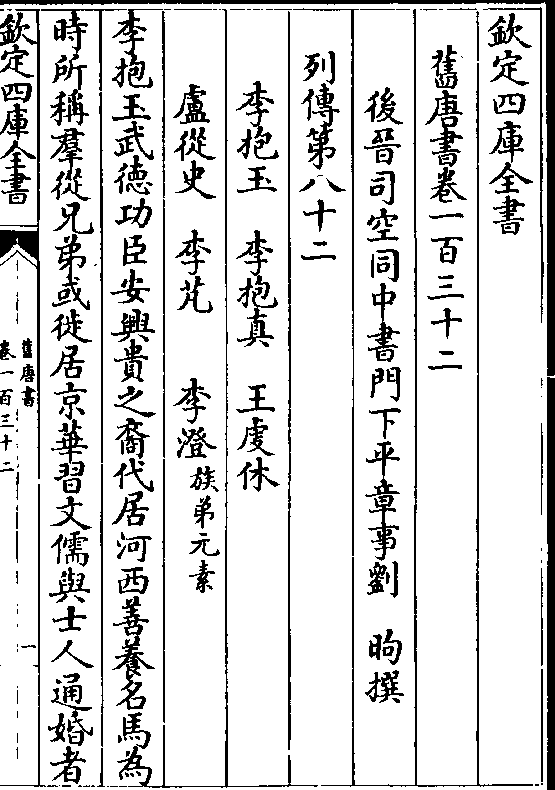 欽定四庫全書
舊唐書卷一百三十二
後晉司空同中書門下平章事劉 昫撰
列傳第八十二
李抱玉 李抱真 王虔休
盧從史 李芃 李澄 族弟元素
李抱玉武德功臣安興貴之裔代居河西善養名馬為
時所稱羣從兄弟或徙居京華習文儒與士人通婚者
欽定四庫全書
舊唐書
卷一百三十二
一